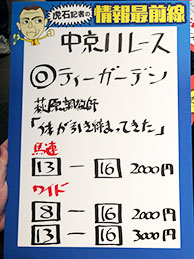 虎石記者の
情報最前線
中京11レース
◎ティーガーデン
萩原調教師
「体が引き締まってきた」
馬連
13 ― 16 2000円
ワイド
8 ― 16 2000円
13 ― 16 3000円